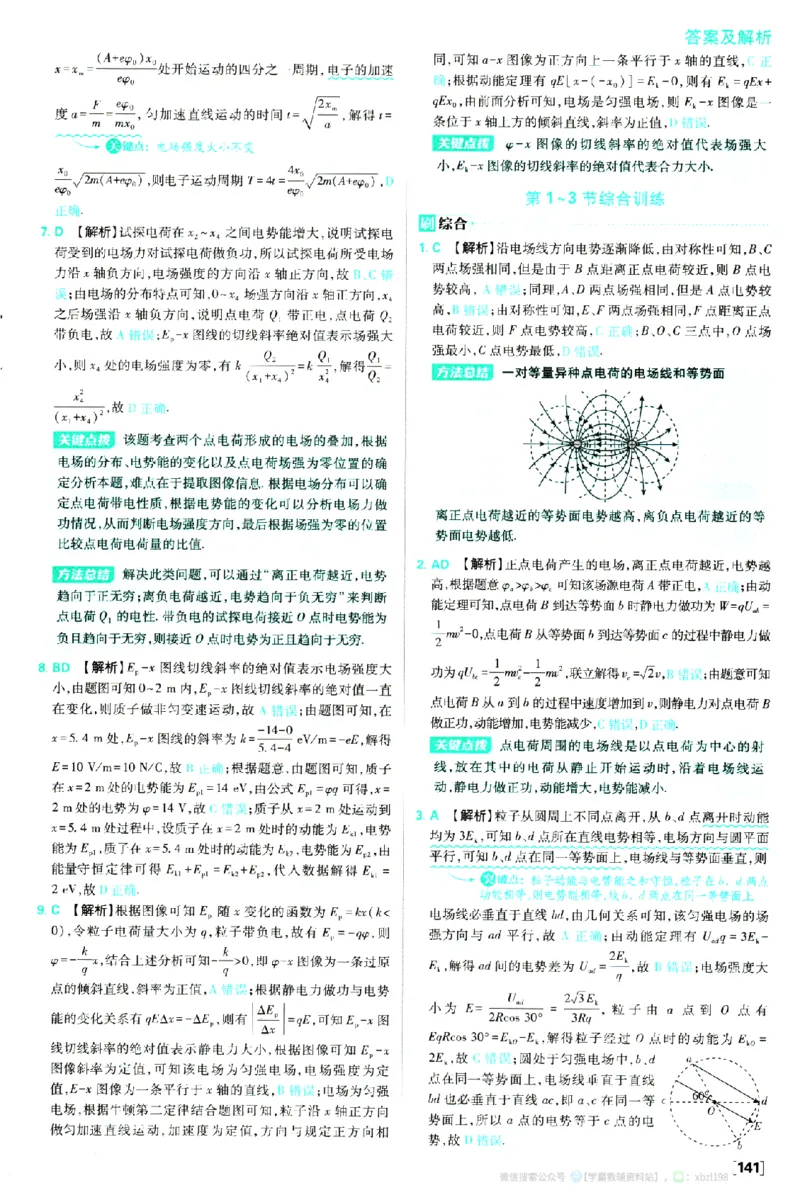 答案及解析
x=x_m=\frac{(A+eφ_0)x_0}{eφ_0}处开始运动的四分之一周期,电子的加速
度a=\frac{F}{m}=\frac{eφ_0}{mx_0},匀加速直线运动的时间t=\sqrt{\frac{2x_m}{a}},解得t=
关键点:电场强度大小不变
\frac{x_0}{eφ_0}\sqrt{2m(A+eφ_0)},则电子运动周期T=4t=\frac{4x_0}{eφ_0}\sqrt{2m(A+eφ_0)},D
正确.
7. D 【解析】试探电荷在x_2~x_4之间电势能增大,说明试探电
荷受到的电场力对试探电荷做负功,所以试探电荷所受电场
力沿x轴负方向,电场强度的方向沿x轴正方向,故B、C错
误;由电场的分布特点可知,0~x_4场强方向沿x轴正方向,x_4
之后场强沿x轴负方向,说明点电荷Q_1带正电,点电荷Q_2
带负电,故A错误;E_p-x图线的切线斜率绝对值表示场强大
小,则x_4处的电场强度为零,有k\frac{Q_2}{(x_1+x_4)^2}=k\frac{Q_1}{x_4^2},解得\frac{Q_1}{Q_2}=
\frac{x_4^2}{(x_1+x_4)^2},故D正确.
关键点拨 该题考查两个点电荷形成的电场的叠加,根据
电场的分布、电势能的变化以及点电荷场强为零位置的确
定分析本题,难点在于提取图像信息.根据电场分布可以确
定点电荷带电性质,根据电势能的变化可以分析电场力做
功情况,从而判断电场强度方向,最后根据场强为零的位置
比较点电荷电荷量的比值.
方法总结 解决此类问题,可以通过“离正电荷越近,电势
趋向于正无穷;离负电荷越近,电势趋向于负无穷”来判断
点电荷Q_1的电性.带负电的试探电荷接近O点时电势能为
负且趋向于无穷,则接近O点时电势为正且趋向于无穷.
8. BD 【解析】E_p-x图线切线斜率的绝对值表示电场强度大
小,由题图可知0~2 m内,E_p-x图线切线斜率的绝对值一直
在变化,则质子做非匀变速运动,故A错误;由题图可知,在
x=5.4 m处,E_p-x图线的斜率为k=\frac{-14-0}{5.4-4} eV/m=-eE,解得
E=10 V/m=10 N/C,故B正确;根据题意,由题图可知,质子
在x=2 m处的电势能为E_{p1}=14 eV,由公式E_{p1}=φq可得,x=
2 m处的电势为φ=14 V,故C错误;质子从x=2 m处运动到
x=5.4 m处过程中,设质子在x=2 m处时的动能为E_{k1},电势
能为E_{p1},质子在x=5.4 m处时的动能为E_{k2},电势能为E_{p2},由
能量守恒定律可得E_{k1}+E_{p1}=E_{k2}+E_{p2},代入数据解得E_{k1}=
2 eV,故D正确.
9. C 【解析】根据图像可知E_p随x变化的函数为E_p=kx(k<
0),令粒子电荷量大小为q,粒子带负电,故有E_p=-qφ,则
φ=-\frac{k}{q}x,结合上述分析可知-\frac{k}{q}>0,即φ-x图像为一条过原
点的倾斜直线,斜率为正值,A错误;根据静电力做功与电势
能的变化关系有qEΔx=-ΔE_p,则有|\frac{ΔE_p}{Δx}|=qE,可知E_p-x图
线切线斜率的绝对值表示静电力大小,根据图像可知E_p-x
图像斜率为定值,可知该电场为匀强电场,电场强度为定
值,E-x图像为一条平行于x轴的直线,B错误;电场为匀强
电场,根据牛顿第二定律结合题图可知,粒子沿x轴正方向
做匀加速直线运动,加速度为定值,方向与规定正方向相
同,可知a-x图像为正方向上一条平行于x轴的直线,C正
确;根据动能定理有qE[x-(-x_0)]=E_k-0,则有E_k=qEx+
qEx_0,由前面分析可知,电场是匀强电场,则E_k-x图像是一
条位于x轴上方的倾斜直线,斜率为正值,D错误.
关键点拨 φ-x图像的切线斜率的绝对值代表场强大
小,E_k-x图像的切线斜率的绝对值代表合力大小.
第1~3节综合训练
刷综合
1. C 【解析】沿电场线方向电势逐渐降低,由对称性可知,B、C
两点场强相同,但是由于B点距离正点电荷较近,则B点电
势较高,A错误;同理,A、D两点场强相同,但是A点电势较
高,B错误;由对称性可知,E、F两点场强相同,F点距离正点
电荷较近,则F点电势较高,C正确;B、O、C三点中,O点场
强最小,C点电势最低,D错误.
方法总结 一对等量异种点电荷的电场线和等势面
离正点电荷越近的等势面电势越高,离负点电荷越近的等
势面电势越低.
2. AD 【解析】正点电荷产生的电场,离正点电荷越近,电势越
高,根据题意φ_a>φ_b>φ_c可知该场源电荷A带正电,A正确;由动
能定理可知,点电荷B到达等势面b时静电力做功为W=qU_{ab}=
\frac{1}{2}mv^2-0,点电荷B从等势面b到达等势面c的过程中静电力做
功为qU_{bc}=\frac{1}{2}mv_c^2-\frac{1}{2}mv^2,联立解得v_c=\sqrt{2}v,B错误;由题意可知
点电荷B从a到b的过程中速度增加到v,则静电力对点电荷B
做正功,动能增加,电势能减少,C错误,D正确.
关键点拨 点电荷周围的电场线是以点电荷为中心的射
线,放在其中的电荷从静止开始运动时,沿着电场线运
动,静电力做正功,动能增大,电势能减小.
3. A 【解析】粒子从圆周上不同点离开,从b、d点离开时动能
均为3E_k,可知b、d点所在直线电势相等,电场方向与圆平面
平行,可知b、d点在同一等势面上,电场线与等势面垂直,则
突破点:粒子动能与电势能之和守恒,粒子在b、d两点
动能相等,则电势能相等,故b、d两点在同一等势面上
电场线必垂直于直线bd,由几何关系可知,该匀强电场的场
强方向与ad平行,故A正确;由动能定理有U_{ad}q=3E_k-
E_k,解得ad间的电势差为U_{ad}=\frac{2E_k}{q},故B错误;电场强度大
小为E=\frac{U_{ad}}{2Rcos 30°}=\frac{2\sqrt{3}E_k}{3Rq},粒子由a点到O点有
EqRcos 30°=E_{kO}-E_k,解得粒子经过O点时的动能为E_{kO}=
2E_k,故C错误;圆处于匀强电场中,b、d
点在同一等势面上,电场线垂直于直线
bd也必垂直于直线ac,即a、c在同一等
势面上,所以a点的电势等于c点的电
势,故D错误.
a
60°
c
O
d
E
b
141
微信搜索公众号【学霸教辅资料站】,:xbzl198